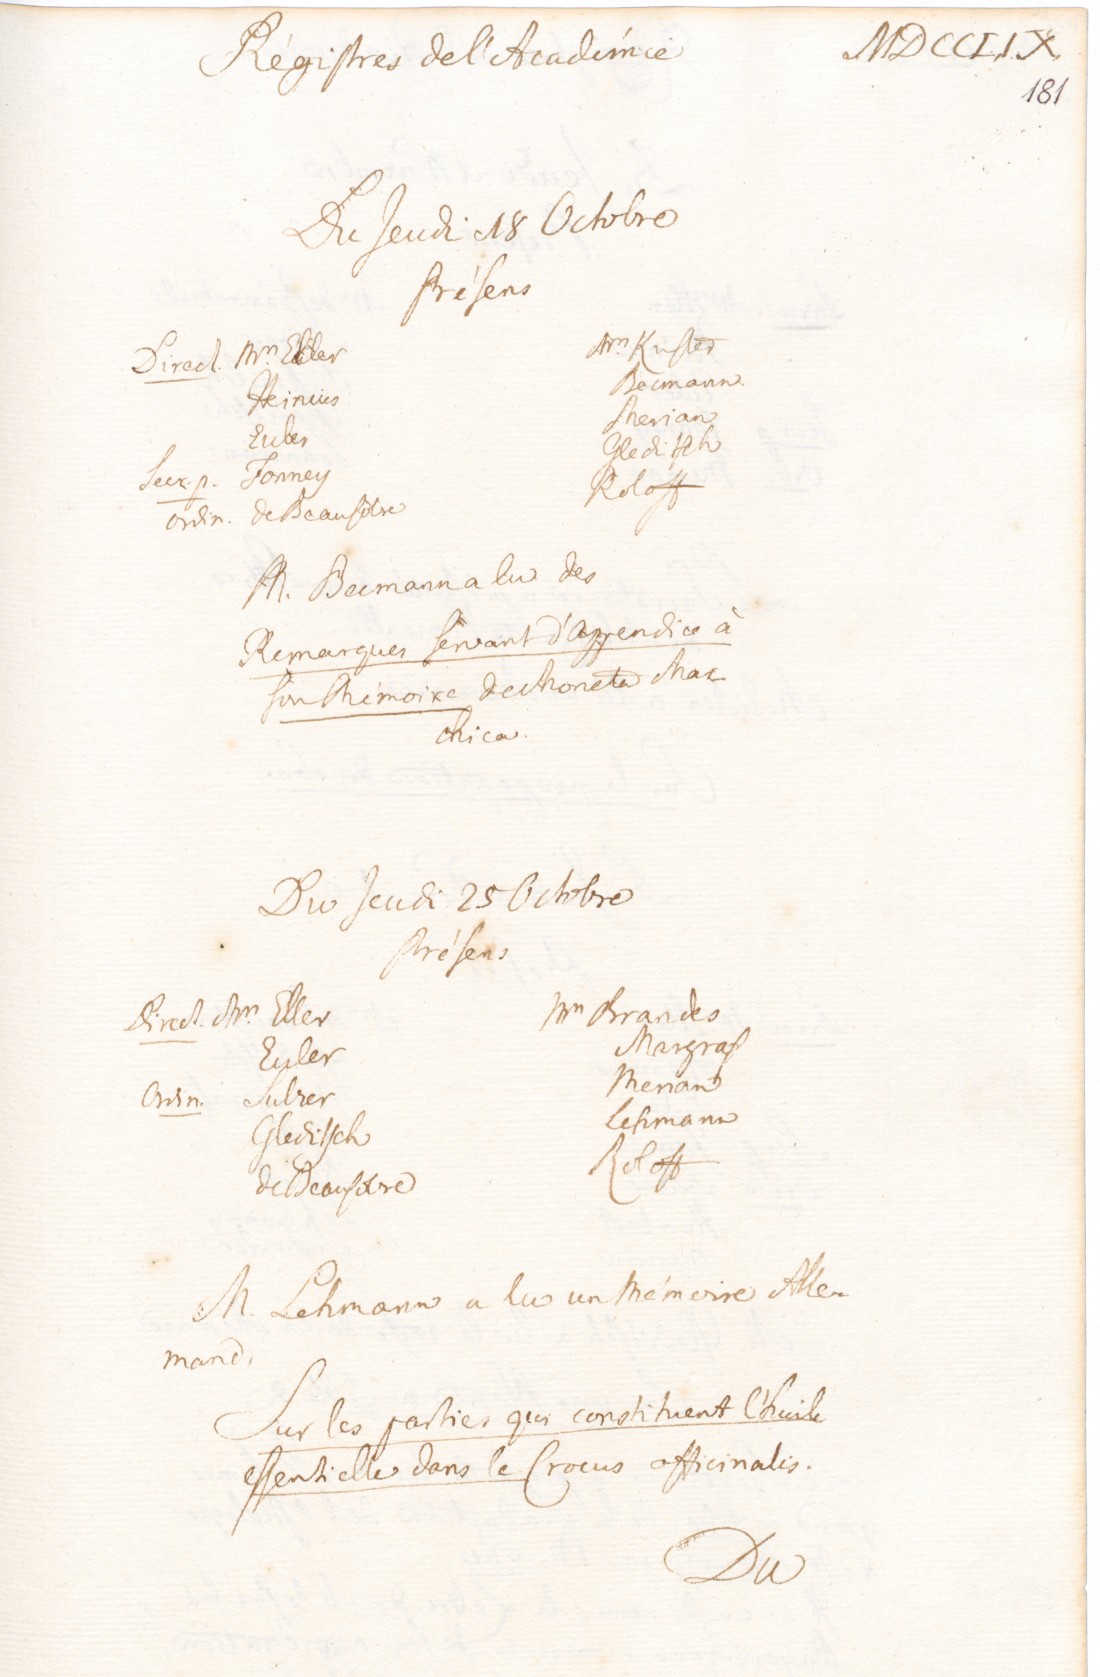 Régistres de l'Académie MDCCLIX.
181
Du Jeudi 18 Octobre
Présens
Direct. Mrs. Eller Mrs. Kuster
Heinius Becmann
Euler Merian
Secr. p. Formey Gleditsch
Ordin. de Beausobre Roloff
M. Becmann a lu des
Remarques servant d'Appendice à
son Mémoire de Moneta Mar-
chica.
Du Jeudi 25 Octobre
Présens
Direct. Mrs. Eller Mrs Brandes
Euler Margraf
Ordin. Sulzer Merian
Gleditsch Lehmann
de Beausobre Roloff
M. Lehmann a lu un Mémoire Alle-
mand,
Sur les parties qui constituent l'huile
essentielle dans le Crocus officinalis.
Du